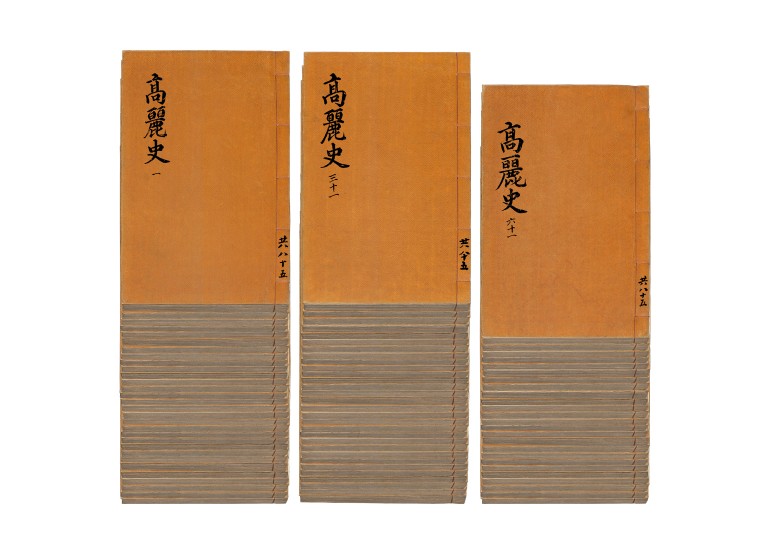 高麗史
一
共八十五
高麗史
三十一
共八十五
高麗史
六十一
共八十五